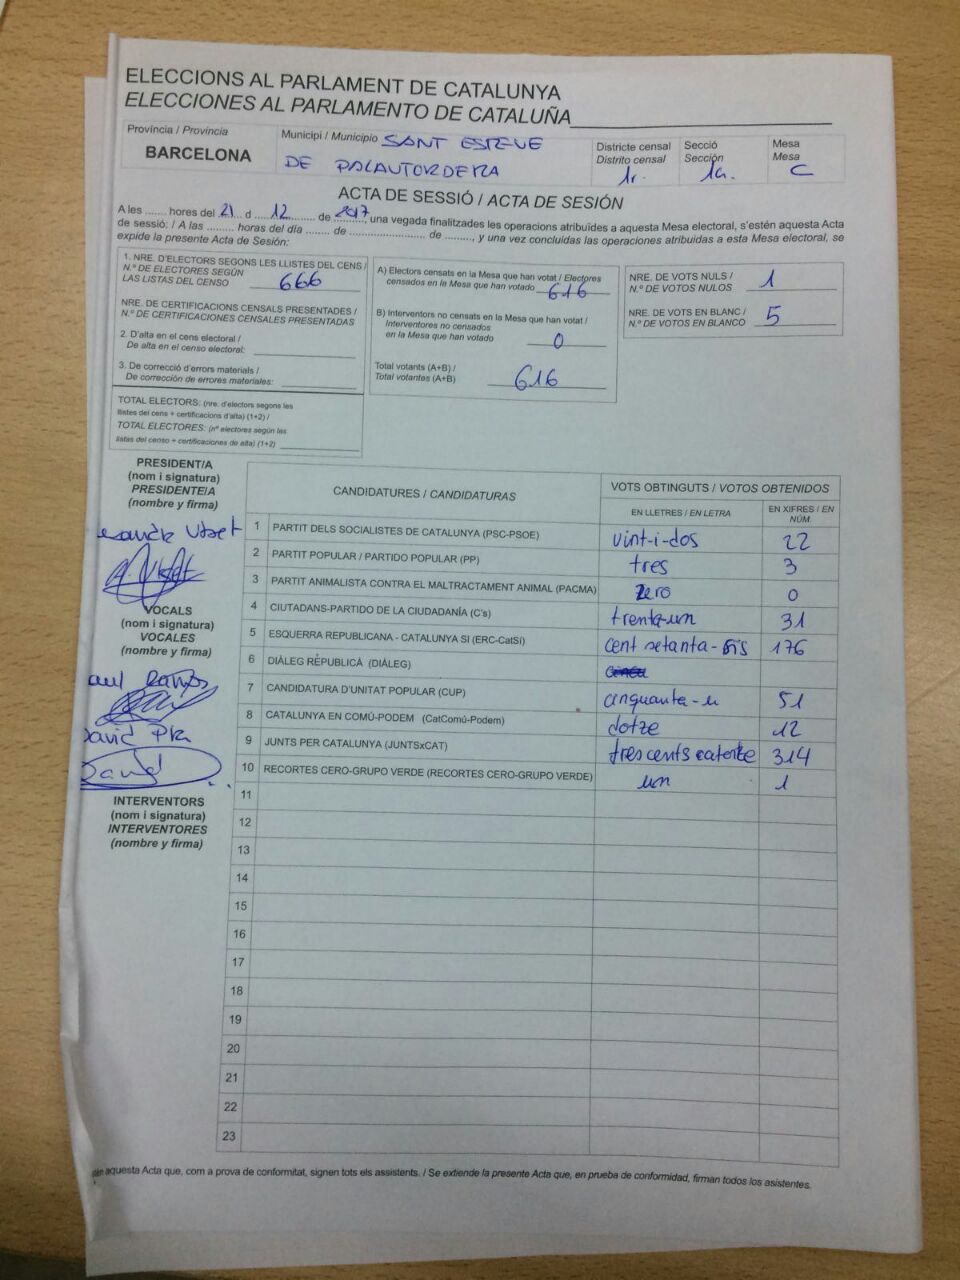 ELECCIONS AL PARLAMENT DE CATALUNYA
ELECCIONES AL PARLAMENTO DE CATALUÑA
Província / Provincia
BARCELONA
Municipi / Municipio SANT ESTEVE
DE PALAUTORDERA
Districte censal
Distrito censal
1r.
Secció
Sección
1a.
Mesa
Mesa
C
ACTA DE SESSIÓ / ACTA DE SESIÓN
A les ....... hores del 21 d 12 de 2017, una vegada finalitzades les operacions atribuïdes a aquesta Mesa electoral, s'estén aquesta Acta
de sessió: / A las ......... horas del día ........ de .......................... de ........., y una vez concluidas las operaciones atribuidas a esta Mesa electoral, se
expide la presente Acta de Sesión:
1. NRE. D'ELECTORS SEGONS LES LLISTES DEL CENS /
N.º DE ELECTORES SEGÚN
LAS LISTAS DEL CENSO 666
NRE. DE CERTIFICACIONS CENSALS PRESENTADES /
N.º DE CERTIFICACIONES CENSALES PRESENTADAS
2. D'alta en el cens electoral /
De alta en el censo electoral:
3. De correcció d'errors materials /
De corrección de errores materiales:
TOTAL ELECTORS: (nre. d'electors segons les
llistes del cens + certificacions d'alta) (1+2) /
TOTAL ELECTORES: (nº electores según las
listas del censo + certificaciones de alta) (1+2)
A) Electors censats en la Mesa que han votat / Electores
censados en la Mesa que han votado 616
B) Interventors no censats en la Mesa que han votat /
Interventores no censados
en la Mesa que han votado 0
Total votants (A+B) /
Total votantes (A+B) 616
NRE. DE VOTS NULS /
N.º DE VOTOS NULOS 1
NRE. DE VOTS EN BLANC /
N.º DE VOTOS EN BLANCO 5
PRESIDENT/A
(nom i signatura)
PRESIDENTE/A
(nombre y firma)
VOCALS
(nom i signatura)
VOCALES
(nombre y firma)
David Pla
David
INTERVENTORS
(nom i signatura)
INTERVENTORES
(nombre y firma)
CANDIDATURES / CANDIDATURAS
VOTS OBTINGUTS / VOTOS OBTENIDOS
EN LLETRES / EN LETRA
EN XIFRES / EN NÚM.
1 PARTIT DELS SOCIALISTES DE CATALUNYA (PSC-PSOE) vint-i-dos 22
2 PARTIT POPULAR / PARTIDO POPULAR (PP) tres 3
3 PARTIT ANIMALISTA CONTRA EL MALTRACTAMENT ANIMAL (PACMA) zero 0
4 CIUTADANS-PARTIDO DE LA CIUDADANÍA (C's) trenta-un 31
5 ESQUERRA REPUBLICANA - CATALUNYA SI (ERC-CatSí) cent setanta-sis 176
6 DIÀLEG REPUBLICÀ (DIÀLEG)
7 CANDIDATURA D'UNITAT POPULAR (CUP) cinquanta-u 51
8 CATALUNYA EN COMÚ-PODEM (CatComú-Podem) dotze 12
9 JUNTS PER CATALUNYA (JUNTSxCAT) trescents catorze 314
10 RECORTES CERO-GRUPO VERDE (RECORTES CERO-GRUPO VERDE) un 1
11
12
13
14
15
16
17
18
19
20
21
22
23
aquesta Acta que, com a prova de conformitat, signen tots els assistents. / Se extiende la presente Acta que, en prueba de conformidad, firman todos los asistentes.